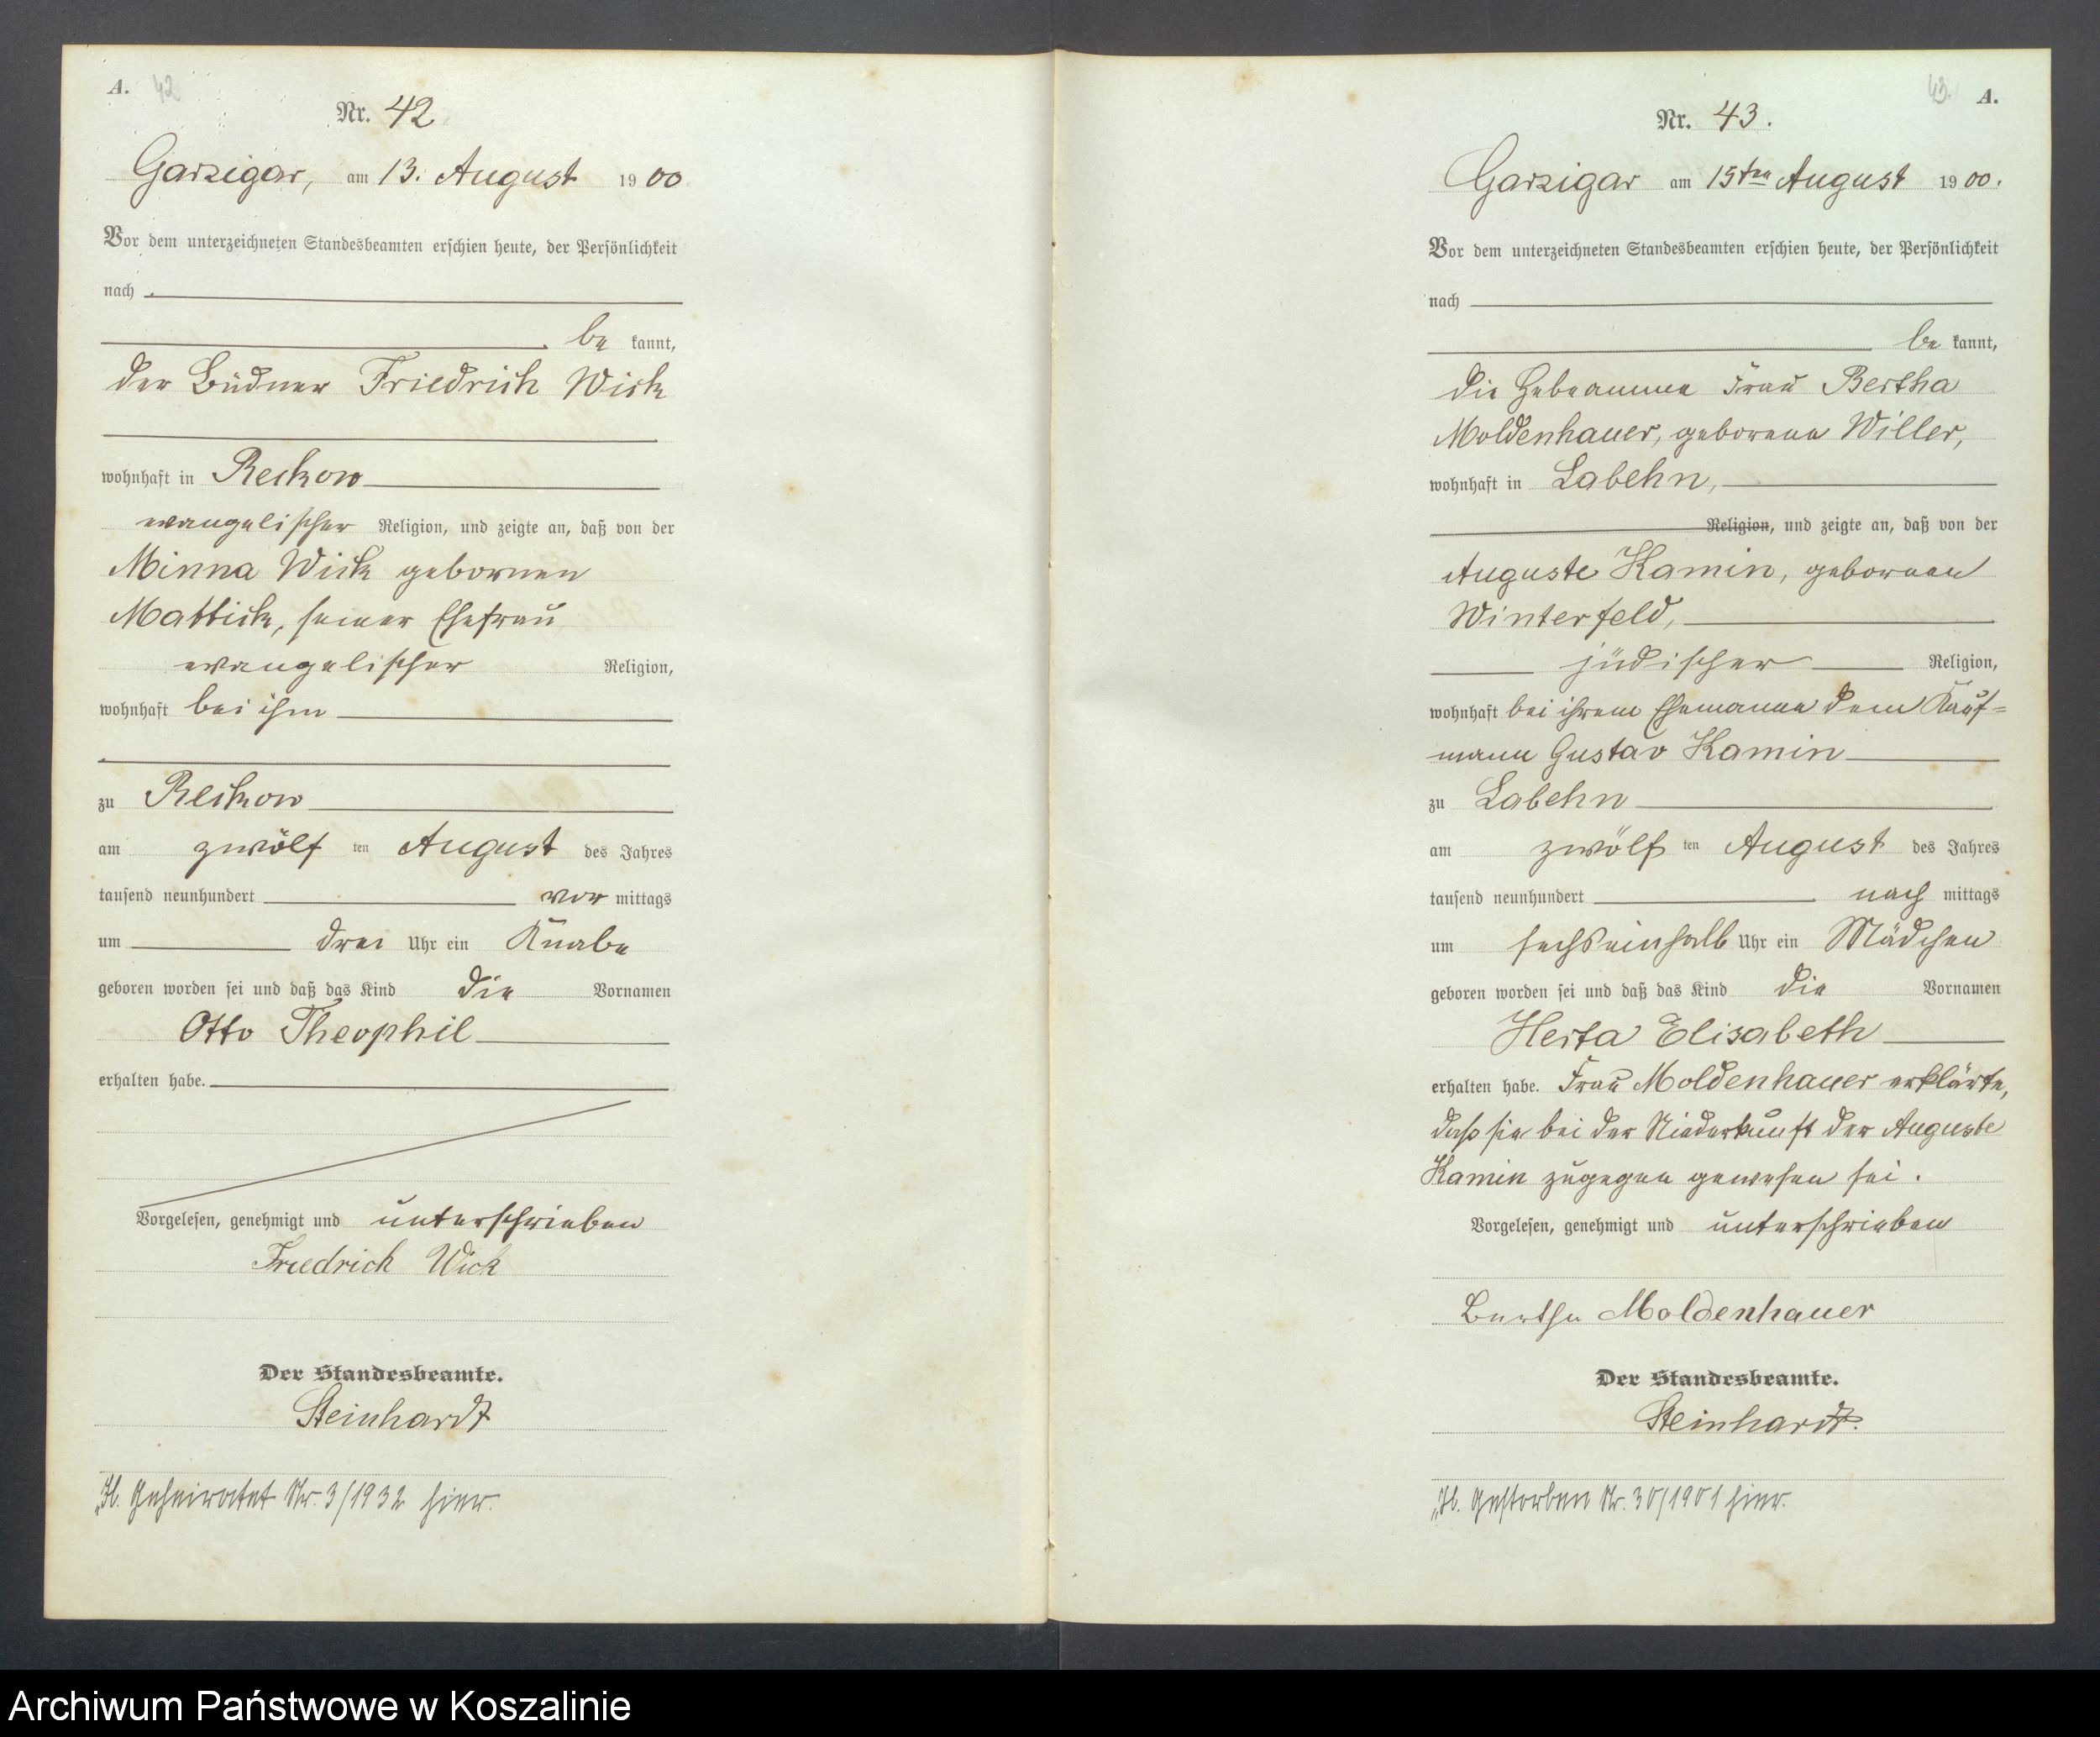 A. 42
Nr. 42
Garzigar, am 13. August 1900
Vor dem unterzeichneten Standesbeamten erschien heute, der Persönlichkeit
nach
be kannt,
der Büdner Friedrich Wick
wohnhaft in Reckow
evangelischer Religion, und zeigte an, daß von der
Minna Wick gebornen
Mattick, seiner Ehefrau
evangelischer Religion,
wohnhaft bei ihm
zu Reckow
am zwölf ten August des Jahres
tausend neunhundert vor mittags
um drei Uhr ein Knabe
geboren worden sei und daß das Kind die Vornamen
Otto Theophil
erhalten habe.
Vorgelesen, genehmigt und unterschrieben
Friedrich Wick
Der Standesbeamte.
Steinhardt
H. Geheiratet Nr. 3/1932 hier.
43. A.
Nr. 43.
Garzigar am 15ten August 1900.
Vor dem unterzeichneten Standesbeamten erschien heute, der Persönlichkeit
nach
be kannt,
die Hebeamme Frau Bertha
Moldenhauer, geborene Willer,
wohnhaft in Labehn,
Religion, und zeigte an, daß von der
Auguste Kamin, gebornen
Winterfeld,
jüdischer Religion,
wohnhaft bei ihrem Ehemanne dem Kauf=
mann Gustav Kamin
zu Labehn
am zwölf ten August des Jahres
tausend neunhundert nach mittags
um sechseinhalb Uhr ein Mädchen
geboren worden sei und daß das Kind die Vornamen
Herta Elisabeth
erhalten habe. Frau Moldenhauer erklärte,
daß sie bei der Niederkunft der Auguste
Kamin zugegen gewesen sei.
Vorgelesen, genehmigt und unterschrieben
Bertha Moldenhauer
Der Standesbeamte.
Steinhardt.
H. Gestorben Nr. 30/1901 hier.
Archiwum Państwowe w Koszalinie